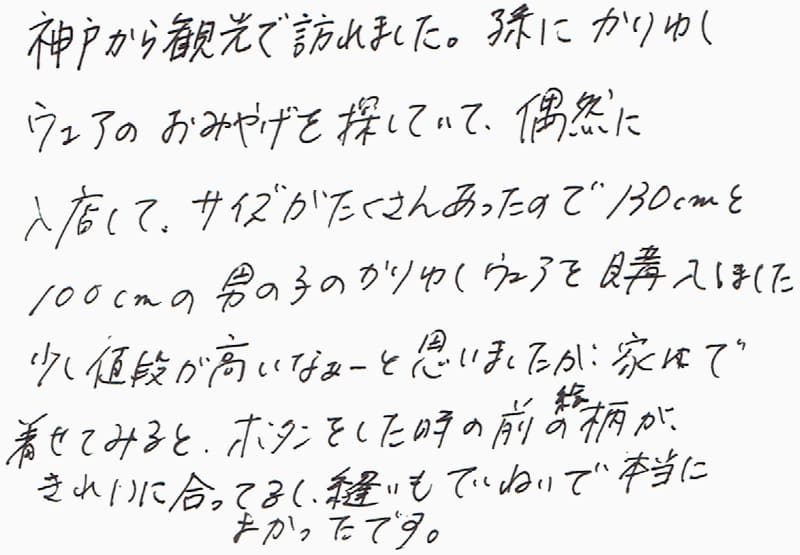 神戸から観光で訪れました。孫にかりゆし
ウェアのおみやげを探していて、偶然に
入店して、サイズがたくさんあったので130cmと
100cmの男の子のかりゆしウェアを購入しました
少し値段が高いなぁーと思いましたが、家で
着せてみると、ボタンをした時の前の絵柄が、
きれいに合ってるし、縫いもていねいで本当に
よかったです。